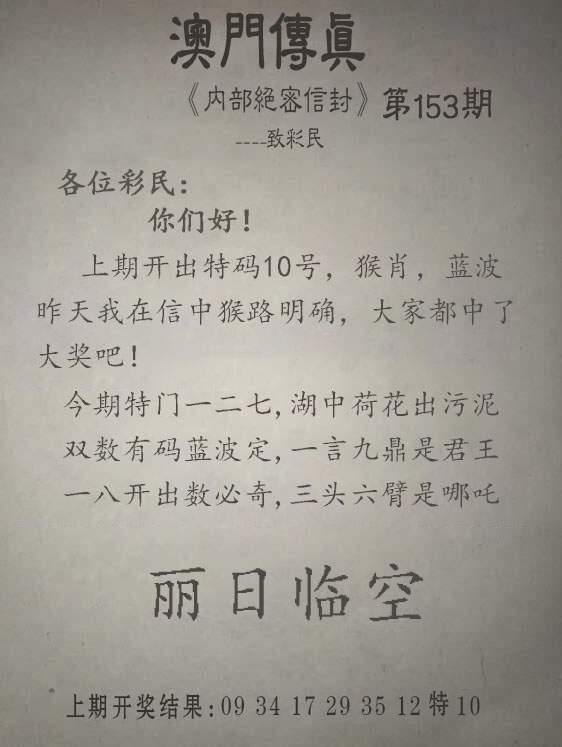 澳門傳眞
《内部絕密信封》第153期
----致彩民
各位彩民：
你们好！
上期开出特码10号，猴肖，蓝波
昨天我在信中猴路明确，大家都中了
大奖吧！
今期特门一二七,湖中荷花出污泥
双数有码蓝波定,一言九鼎是君王
一八开出数必奇,三头六臂是哪吒
丽日临空
上期开奖结果:09 34 17 29 35 12 特 10